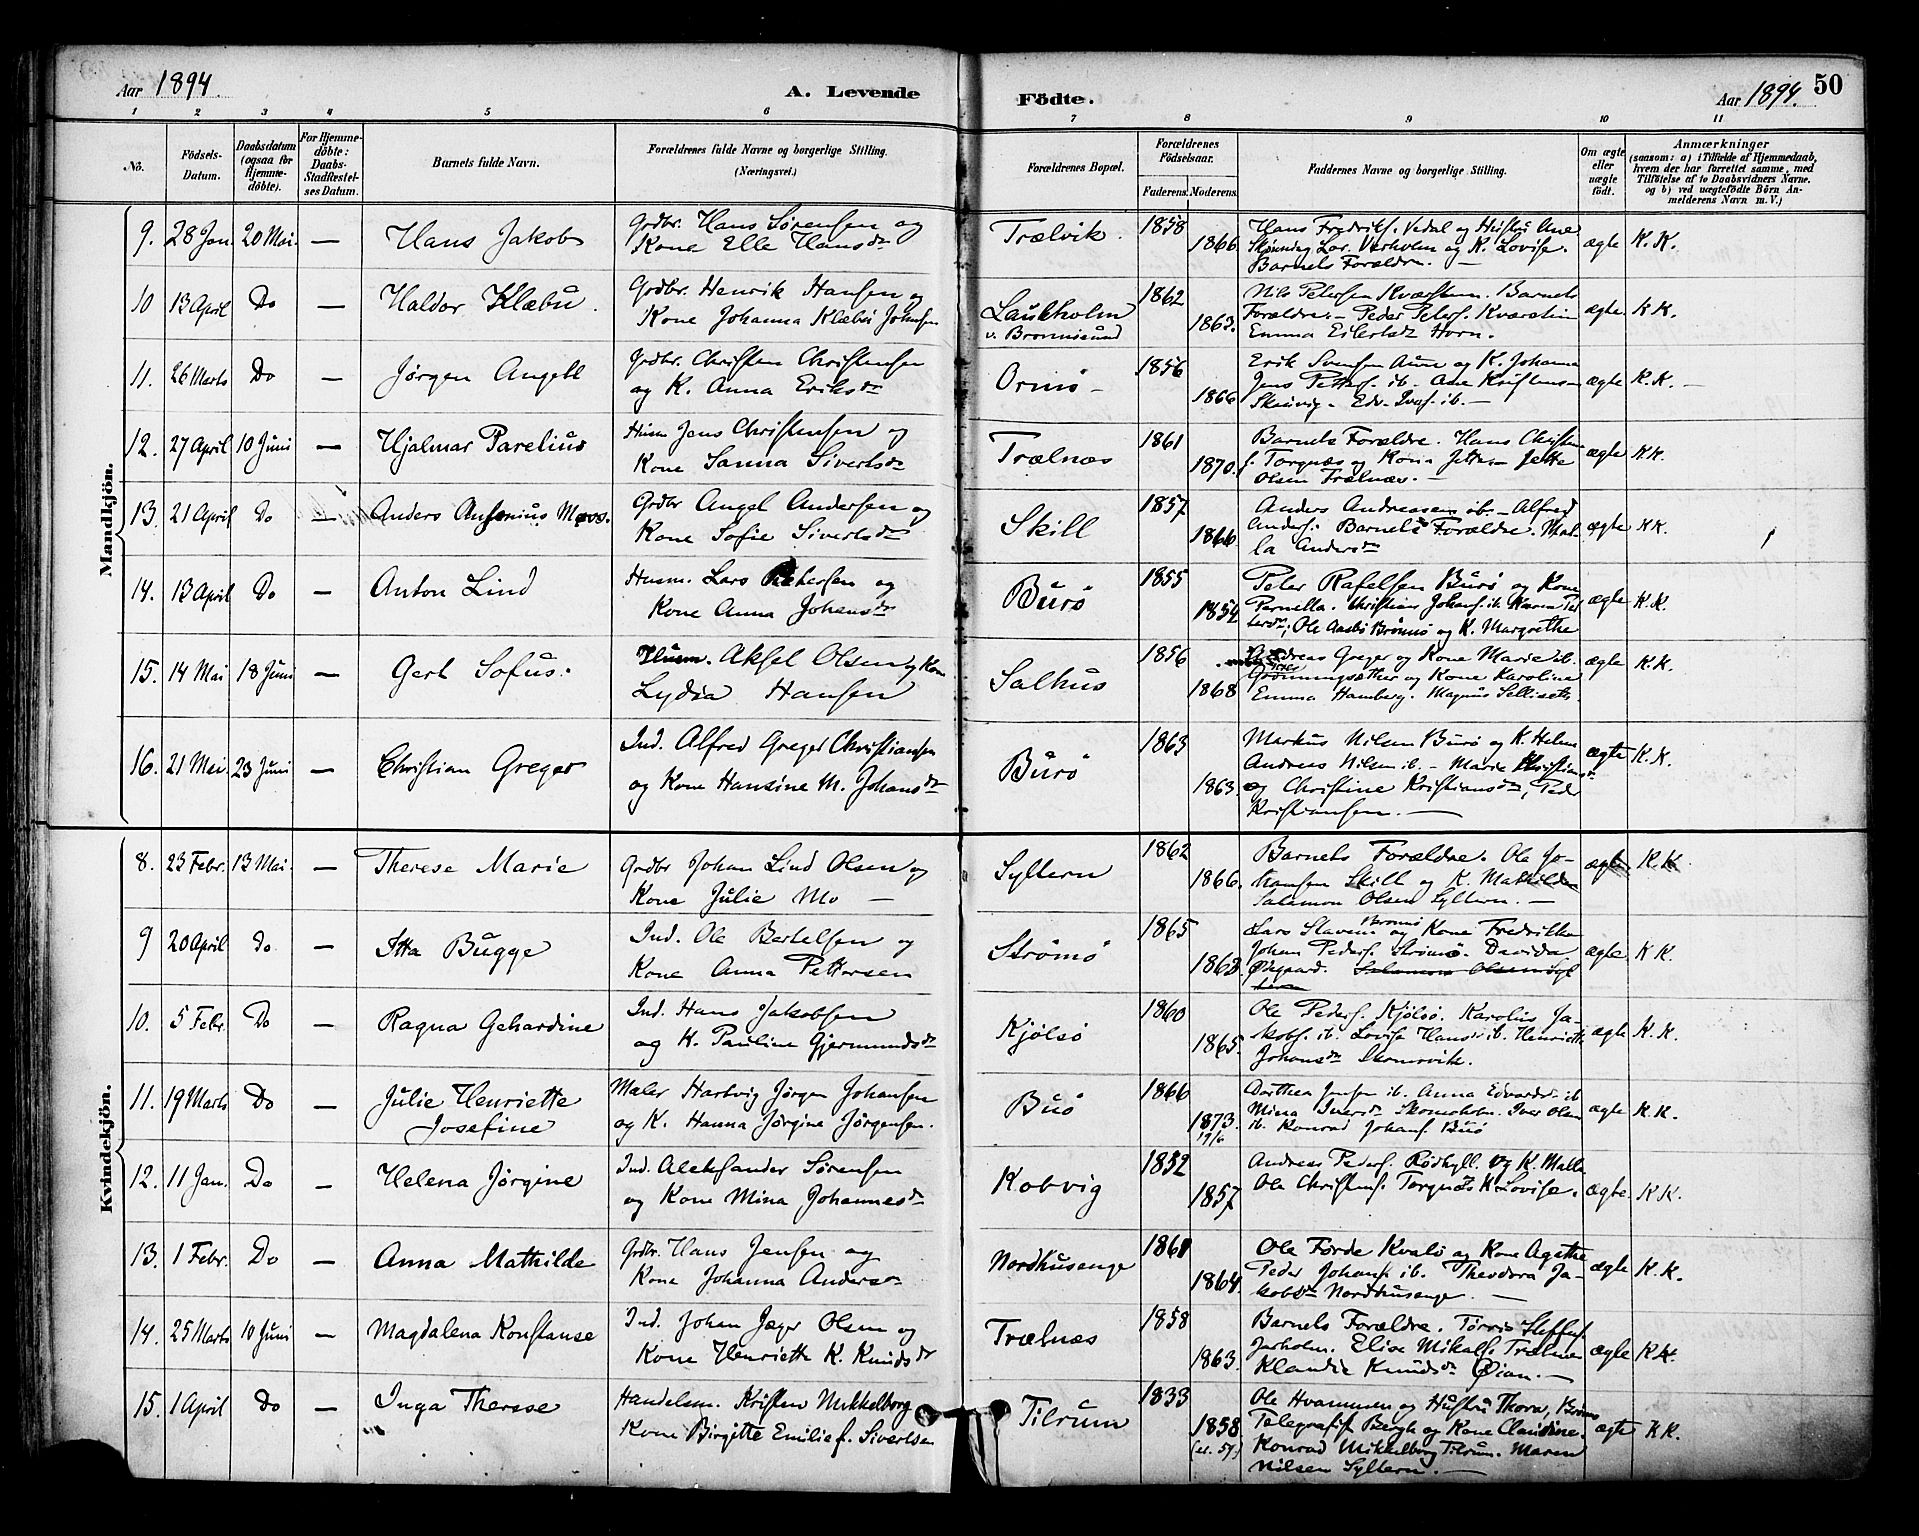 Aar 1894.
A. Levende
Födte.
Aar 1894.
50
1 2 3 4 5 6 7 8 9 10 11
No.
Födsels-Datum.
Daabsdatum (ogsaa for Hjemmedöbte).
For Hjemmedöbte: Daabs-Stadfestelses Datum.
Barnets fulde Navn.
Forældrenes fulde Navne og borgerlige Stilling. (Næringsvei.)
Forældrenes Bopæl.
Forældrenes Födselsaar.
Faderens. Moderens.
Faddernes Navne og borgerlige Stilling.
Om ægte eller uægte födt.
Anmærkninger
(saasom: a) i Tilfælde af Hjemmedaab, hvem der har forrettet samme, med Tilföielse af to Daabsvidners Navne. og b) ved uægtefödte Börn Anmelderens Navn m. V.)
Mandkjön.
9. 28 Jan. 20 Mai. — Hans Jakob
Grdbr. Hans Sørensen og
Kone Elle Hansdr
Trælvik. 1858 1866
Hans Fredriks. Vedal og Hustru Ane
Lar. Verholm og K. Lovise.
Barnets Forældre. —
ægte K. K.
10 13 April Do — Haldor Klæbu.
Grdbr. Henrik Hansen og
Kone Johanna Klæbu Johnsen
Laukholm
v. Brønnøsund
1862 1863.
Nils Petersen Kværstein. Barnets
Forældre. — Peder Peters. Kværstein
Emma Eilertsdr Horn.
ægte K K.
11. 26 Marts Do — Jørgen Angell
Grdbr. Christen Christensen
og K. Anna Eriksdr
Ormø — 1856 1866
Erik Svensen Aune og K. Johanna
Jens Petters. ib. Ane Kristens—
Skeisvig. Edv. Ivars. ib. —
ægte K. K. —
12. 27 April 10 Juni — Hjalmar Parelius
Husm Jens Christensen og
Kone Sanna Sivertsdr
Trælnæs 1861 1870.
Barnets Forældre. Hans Christens
f. Torgnæs og Kone Jette. — Jette
Olsen Trælnæs. —
ægte K K.
13. 21 April Do — Anders Antonius Moros.
Grdbr Angel Andersen og
Kone Sofie Sivertsdr
Skill 1857 1866
Anders Andreassen ib. — Alfred
Anders. Barnets Forældre. Mal-
la Andersdr
ægte K K.
14. 13 April Do — Anton Lind
Husm. Lars Petersen og
Kone Anna Johansdr
Burø 1855 1854
Peter Rafelsen Burø og Kone
Pernella. Christian Johans. ib. Maren Pet-
tersdr; Ole Aasbø Brønnø og K. Margrethe
ægte K. K.
15. 14 Mai 18 Juni — Gerl Sofus.
Husm. Aksel Olsen og Kone
Lydia Hansen
Salhus 1856 1868
Andreas Greger og Kone Marie ib.
Grønningsæther og Kone Karoline
Emma Hamberg. Magnus Sellisæth
ægte K. K.
16. 21 Mai. 23 Juni — Christian Greger
Ind. Alfred Greger Christiansen
og Kone Hansine M. Johansdr
Burø 1863 1863.
Markus Nilsen Burø og K. Helene
Andreas Nilsen ib. — Marie Christiansdr
og Christine Kristiansdr, Peder
Kristiansen. —
ægte K. K.
Kvindekjön.
8. 23 Febr. 13 Mai. — Therese Marie
Grdbr Johan Lind Olsen og
Kone Julie Mo —
Syltern 1862 1866.
Barnets Forældre. Ole Jo-
hansen Skill og K. Mathilde
Salamon Olsen Syltern. —
ægte K. K
9 20 April Do — Itta Bugge
Ind. Ole Bertelsen og
Kone Anna Pettersen
Strømø 1865 1863
Lars Slavem Brønnø og Kone Fredrikke
Johan Peders. Strømø. Davida
Ødegaard. Salamon Olsen Syl
tern
ægte K K.
10. 5 Febr. Do — Ragna Gehardine
Ind. Hans Jakobsen
og K. Pauline Gjermundsdr
Kjølsø 1860 1865.
Ole Peders. Kjølsø. Karolius Ja-
kobs. ib. Lovise Hansdr ib. Henriette
Johansdr Skomovik.
ægte K. K.
11. 19 Marts Do — Julie Henriette
Josefine
Maler Hartvig Jørgen Johansen
og K. Hanna Jørgine Jørgensen.
Buø 1866 1873. 19/6
Dorthea Jensen ib. Anna Edvardsdr ib
Mina Iversdr Skomoholm. Iver Olsen
ib. Konrad Johans. Buø
ægte K. K.
12. 11 Jan. Do — Helena Jørgine
Ind. Aleksander Sørensen
og Kone Mina Johannesdr
Kobvig 1852 1857
Andreas Peders. Rødhyll. og K. Malla
Ole Christens. Torgnæs K. Lovise.
ægte. K K.
13. 1 Febr. Do — Anna Mathilde
Grdbr. Hans Jensen og
Kone Johanna Andersdr
Nordhusenge 1861 1864.
Ole Førde Kvalø og Kone Agathe
Peder Johans. ib. Theodora Ja-
kobsdr Nordhusenge. —
ægte K. K.
14. 25 Marts 10 Juni — Magdalena Konstanse
Ind. Johan Jæger Olsen og
Kone Henriette K. Knudsdr
Trælnæs 1858 1863.
Barnets Forældre. Tørris Steffens.
Jarholm. Elise Mikals. Trælnes
Klaudie Knudsdr Øian. —
ægte K K.
15. 1 April Do — Inga Therese
Handelsm. Kristen Mikkelborg
Kone Birgitte Emilie f. Sivertsen
Tilrum 1833 1858 (el. 57)
Ole Hvammen og Hustru Thora, Brønnø
Telegrafist Bergh og Kone Claudine.
Konrad Mikkelborg Tilrum. Maren
Nilsen Syltern. —
ægte K K.